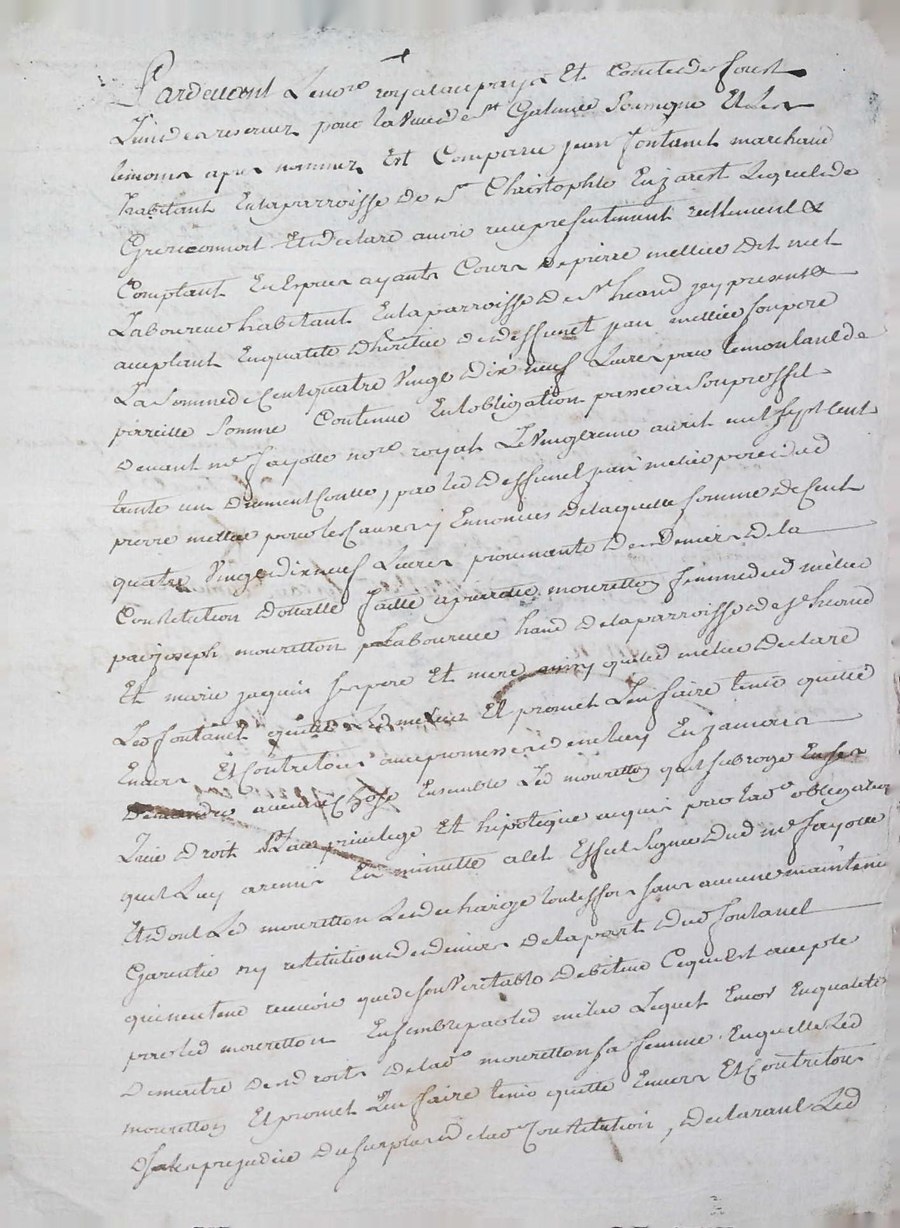 Pardevant Le nore royal au pays Et Comté de forest
L'un des reservez pour la ville de St Galmier Soussigné Et Les
temoins apres nommez Est Comparu jean fontanel marchand
habitant En la parroisse de St Christophle En jarest Lequel de
Gré Et declare avoir reçu presentement rellement &
Comptant En Especes ayants Cours de pierre mellier dit
Laboureur habitant En la parroisse de St heand jcy present &
acceptant En qualité D'héritier de deffunct jean mellier Son pere
La Somme de Cent quatre Vingt dix neuf Livres pour le montant de
pareille Somme Contenue En Lobligation passée à Son proffit
devant me fayolle nore royal Le Vingtieme avril mil Sept Cent
trente un duement Conttee, par led deffunct jean mélier pere dud
pierre mellier pour les Causes y Ennoncées de laquelle Somme de Cent
quatre Vingt dix neuf Livres provenante des deniers de la
Constitution dottalle faitte a pierrette mouretton femme dud mélier
par joseph mouretton Laboureur hand de la parroisse de St heand
Et marie jaquin Ses pere Et mere ainsy que led mélier declare
Led fontanel quitte Led mélier Et promet L'en faire tenir quitte
Envers Et Contre tous avec promesse de ne luy En jamais
demander aucune Chose Ensemble Led mouretton qu'il subroge En Ses
Lieu droit place privilege Et hipoteque acquis par lad obligation
qu'il Luy a remis En minutte Et Signée dud me fayolle
Et dont Led mouretton Le decharge touttesfois Sans aucune maintenue
Garentie ny restitution de deniers de la part dud fontanel
qui n'entend recevoir que de Son Veritable debiteur Ce qui Est accepté
par led mouretton Ensemble par led mélier Lequel Encor En qualité
de maitre des droits de lad mouretton Sa femme En quitte Led
mouretton Et promet L'en faire tenir quitte Envers Et Contre tous
Sans prejudice du Surplus de lad Constitution, declarant Led